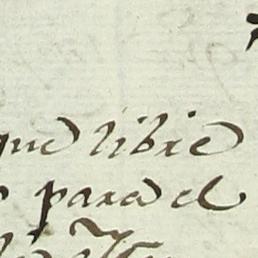 que libre
para el